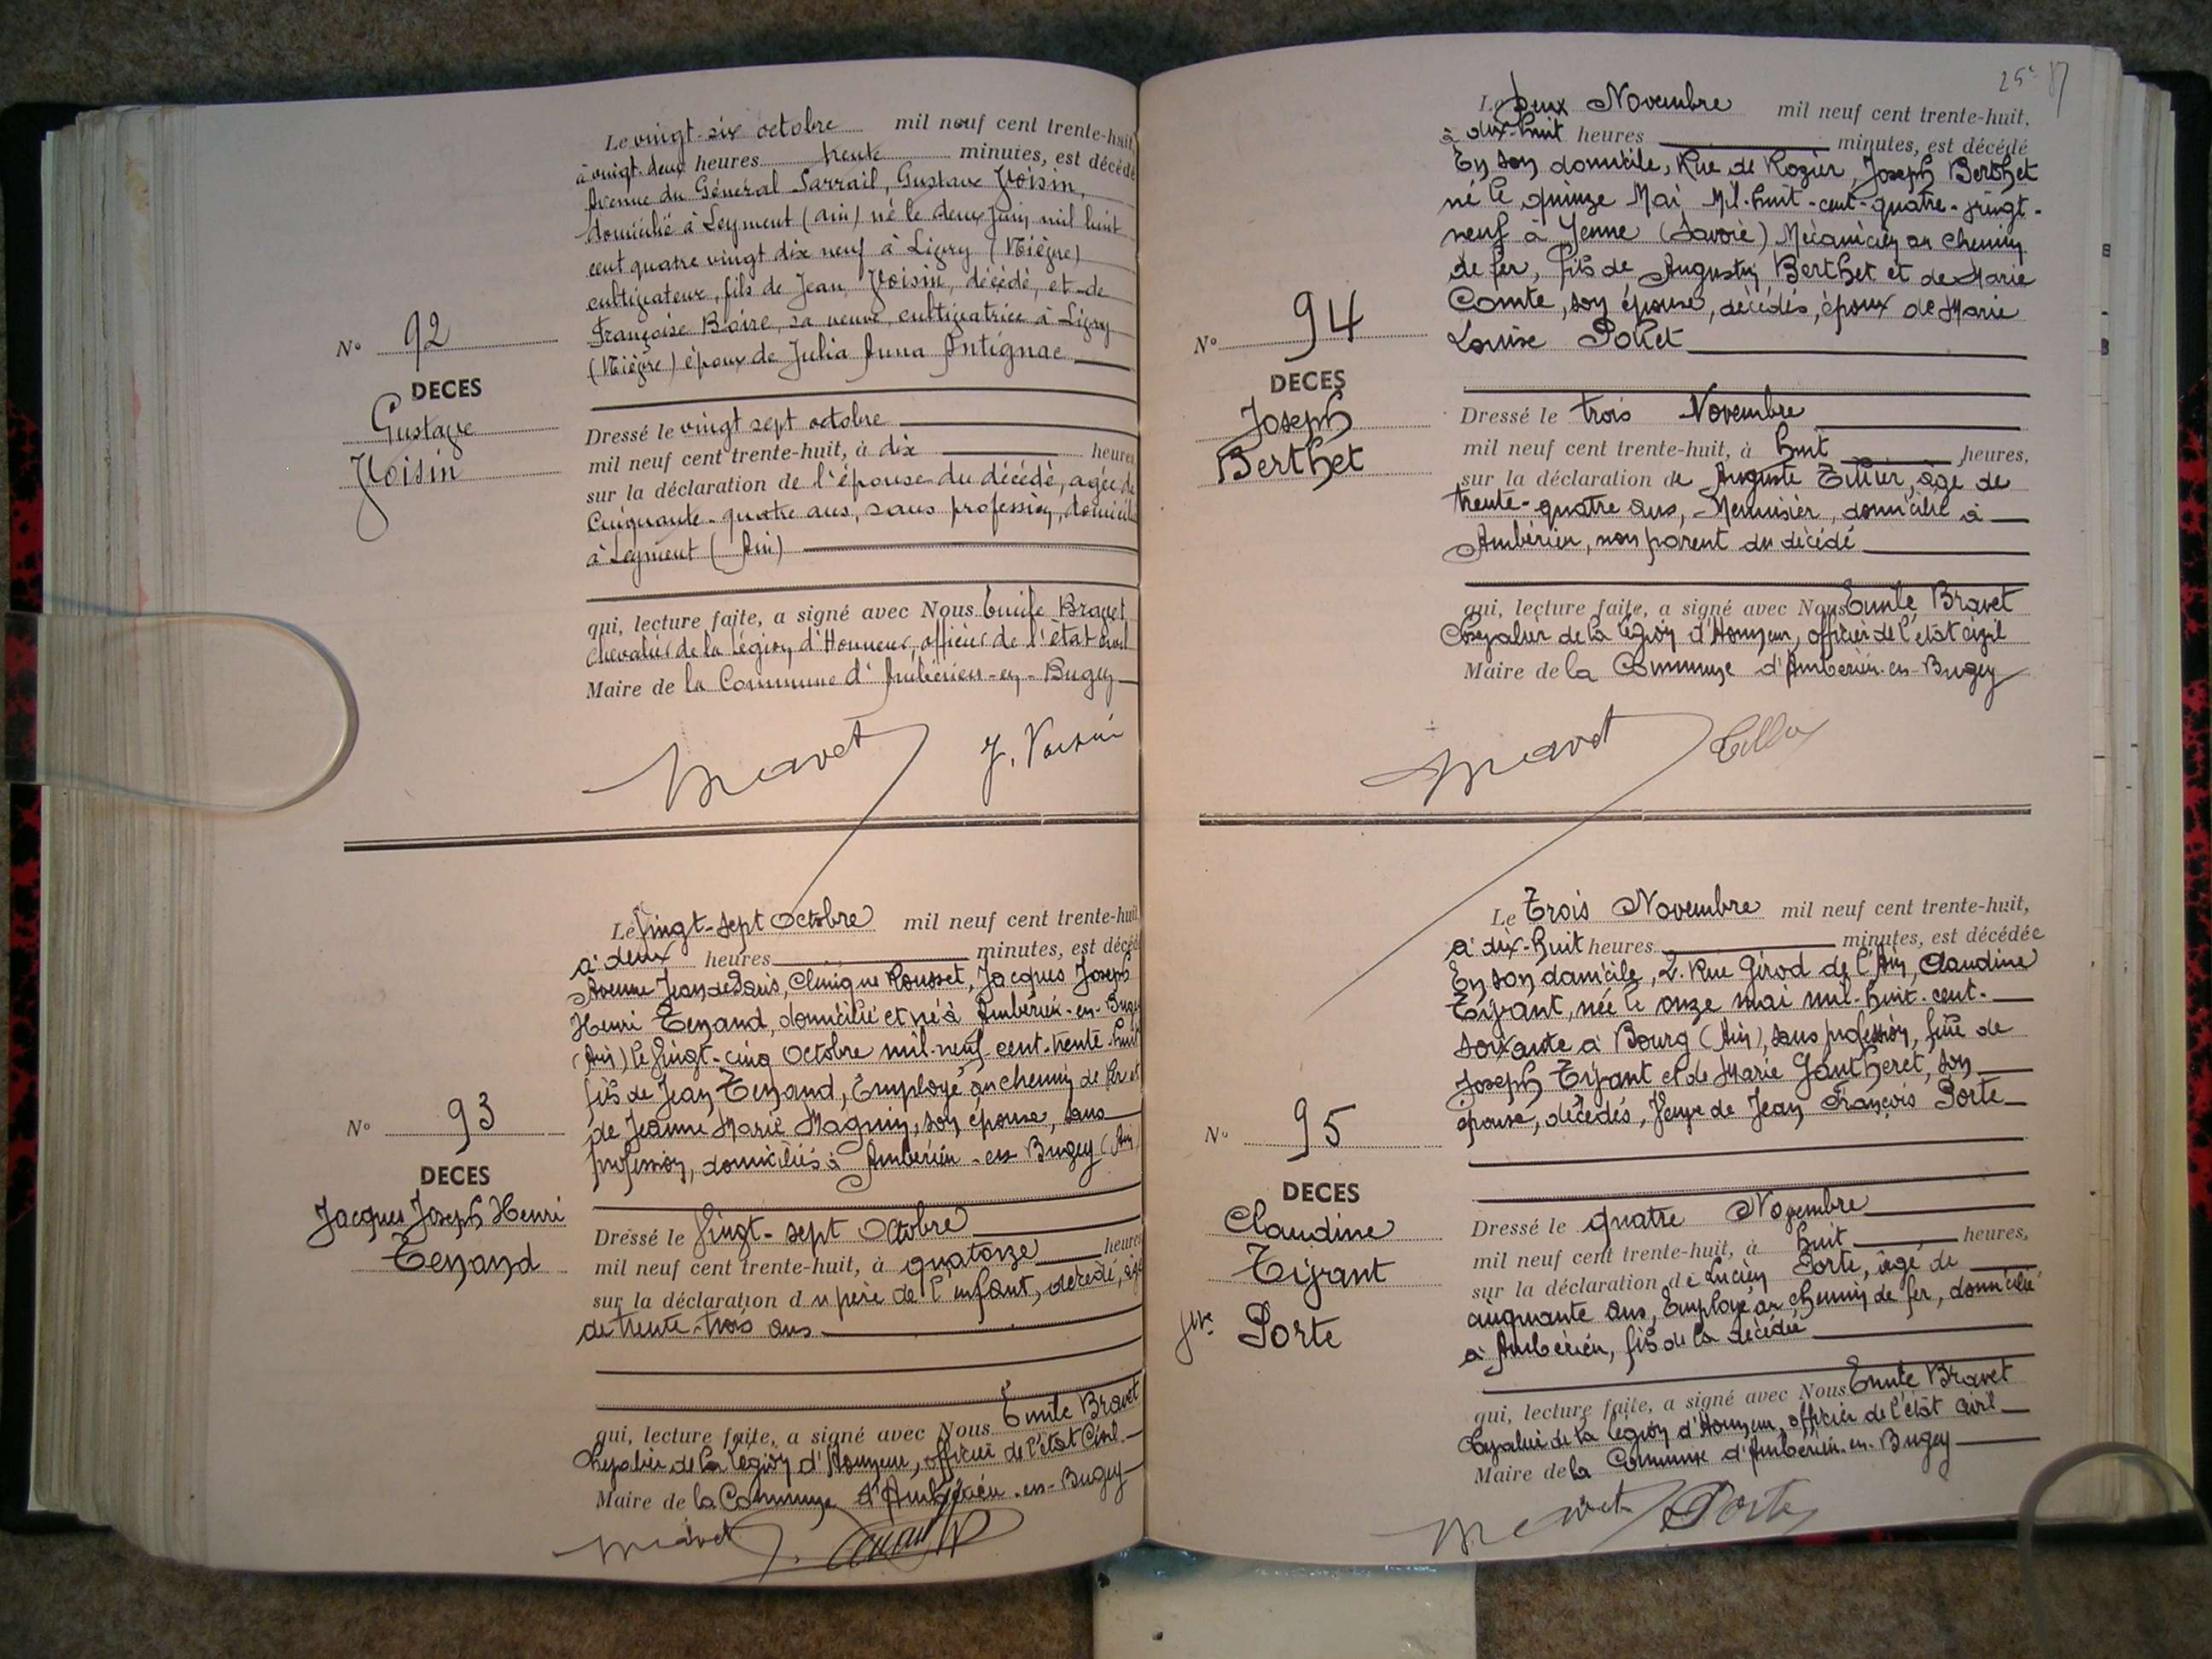 Le vingt-six octobre mil neuf cent trente-huit,
à vingt-deux heures trente minutes, est décédé
Avenue du Général Sarrail, Gustave Voisin,
domicilié à Leyment (Ain) né le deux Juin mil huit
cent quatre vingt dix neuf à Ligny (Nièvre)
cultivateur, fils de Jean Voisin, décédé, et de
Françoise Boire, sa veuve, cultivatrice à Ligny
(Nièvre) époux de Julia Anna Antignac
N° 92
DECES
Gustave
Voisin
Dressé le vingt sept octobre
mil neuf cent trente-huit, à dix heures
sur la déclaration de l'épouse du décédé, agée de
Cinquante-quatre ans, sans profession, domiciliée
à Leyment (Ain)
qui, lecture faite, a signé avec Nous Emile Bravet
Chevalier de la légion d'Honneur, officier de l'état civil
Maire de la Commune d'Ambérieu-en-Bugey
Bravet J. Voisin
Le Vingt-sept Octobre mil neuf cent trente-huit,
à deux heures minutes, est décédé
Avenue Jean de Paris, Clinique Rousset, Jacques Joseph
Henri Tenand, domicilié et né à Ambérieu-en-Bugey
(Ain) le Vingt-cinq Octobre mil-neuf-cent-trente-huit
fils de Jean Tenand, Employé au chemin de fer et
de Jeanne Marie Magnin, son épouse, sans
profession, domiciliés à Ambérieu-en-Bugey (Ain)
N° 93
DECES
Jacques Joseph Henri
Tenand
Dressé le Vingt-sept Octobre
mil neuf cent trente-huit, à quatorze heures
sur la déclaration du père de l'enfant, décédé, agé
de trente-trois ans
qui, lecture faite, a signé avec Nous Emile Bravet
Chevalier de la légion d'Honneur, officier de l'état Civil
Maire de la Commune d'Ambérieu-en-Bugey
Bravet
25e 87
Le Deux Novembre mil neuf cent trente-huit,
à dix-huit heures minutes, est décédé
En son domicile, Rue de Rozier, Joseph Berthet
né le quinze Mai Mil-huit-cent-quatre-vingt-
neuf à Yenne (Savoie) Mécanicien au chemin
de fer, fils de Augustin Berthet et de Marie
Comte, son épouse, décédés, époux de Marie
Louise Pollet
N° 94
DECES
Joseph
Berthet
Dressé le trois Novembre
mil neuf cent trente-huit, à huit heures,
sur la déclaration de Auguste Tillier, âgé de
trente-quatre ans, Menuisier, domicilié à
Ambérieu, non parent du décédé
qui, lecture faite, a signé avec Nous Emile Bravet
Chevalier de la légion d'Honneur, officier de l'état civil
Maire de la Commune d'Ambérieu-en-Bugey
Bravet
Le Trois Novembre mil neuf cent trente-huit,
à dix-huit heures minutes, est décédée
En son domicile, 2 Rue Girod de l'Ain, Claudine
Tivant, née le onze mai mil-huit-cent-
soixante à Bourg (Ain), sans profession, fille de
Joseph Tivant et de Marie Gantheret, son
épouse, décédés, Veuve de Jean François Porte
N° 95
DECES
Claudine
Tivant
Vve Porte
Dressé le quatre Novembre
mil neuf cent trente-huit, à huit heures,
sur la déclaration de Lucien Porte, âgé de
cinquante ans, Employé au chemin de fer, domicilié
à Ambérieu, fils de la décédée
qui, lecture faite, a signé avec Nous Emile Bravet
Chevalier de la légion d'Honneur, officier de l'état civil
Maire de la Commune d'Ambérieu-en-Bugey
Bravet Porte